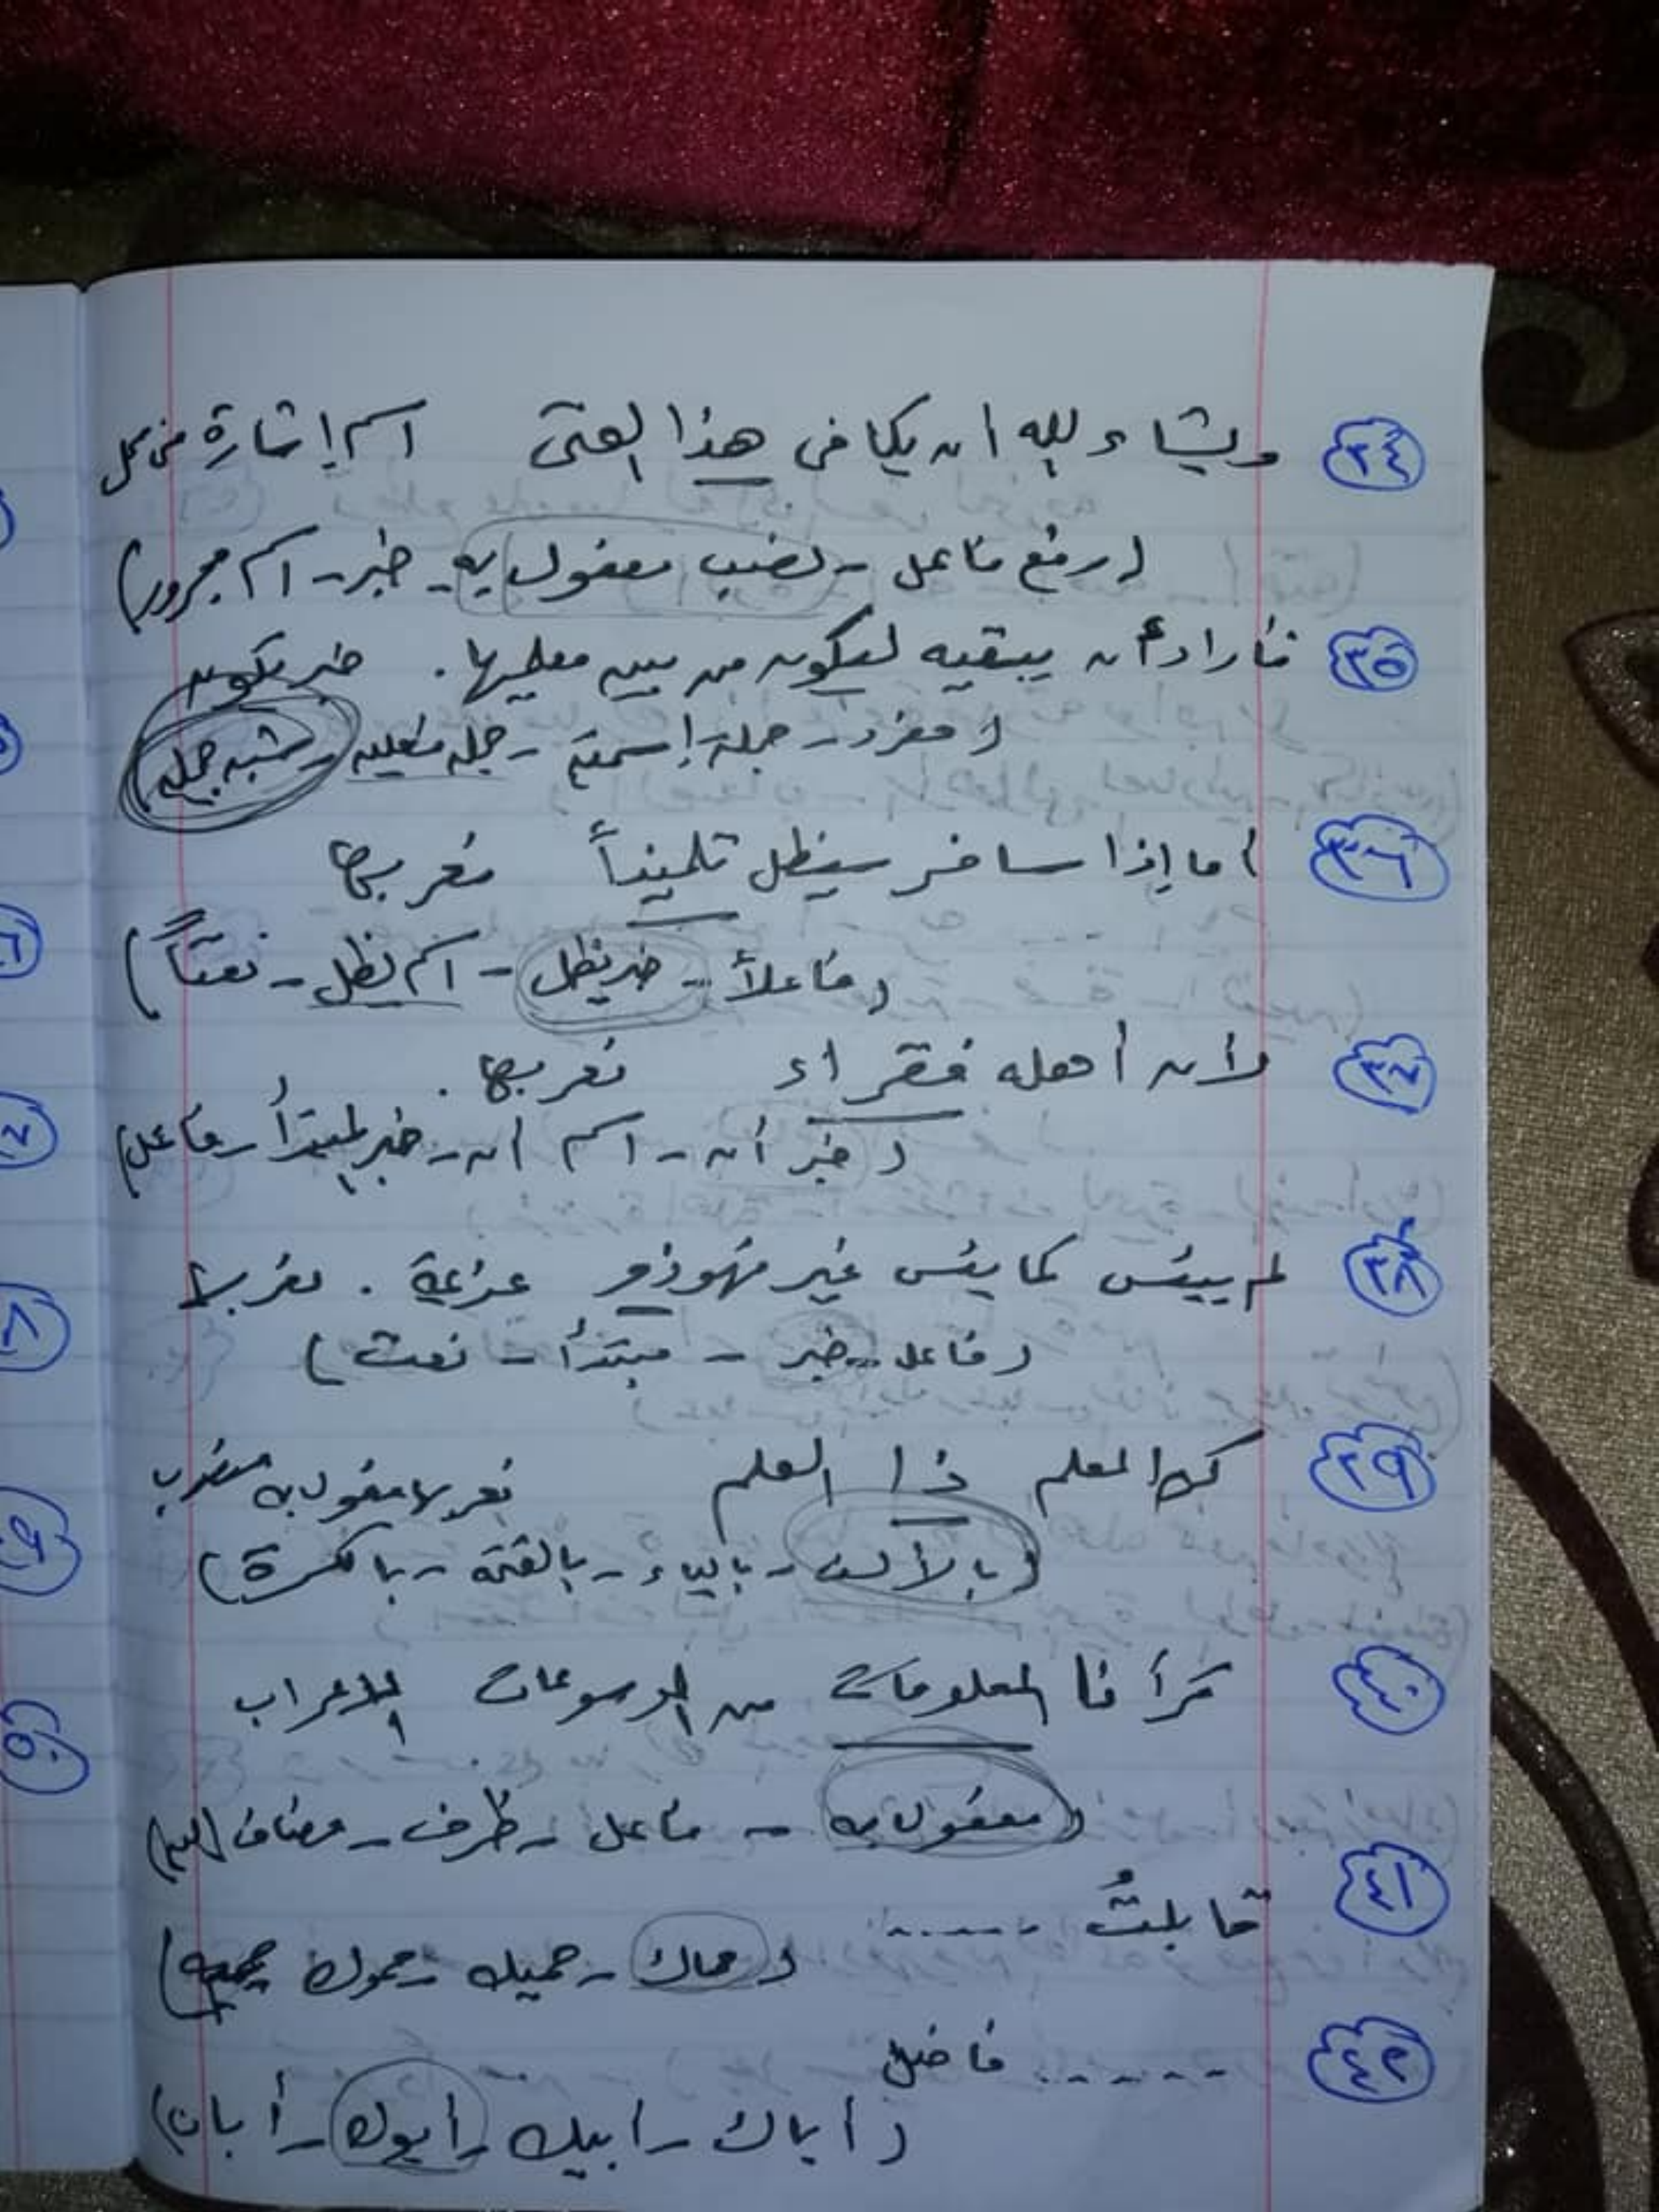 ٣٤ ويشاء الله أن يكافى هذا الفتى اسم إشارة فى محل
(رفع فاعل - نصب مفعول به - خبر - اسم مجرور)
٣٥ فأراد أن يبقيه ليكون من بين معليها. خبر يكون
(مفرد - جملة إسمية - جملة فعلية - شبه جملة
٣٦ أما إذا سافر سيظل تلميذاً نعربها
(فاعلاً - خبر يظل - اسم يظل - نعتاً)
٣٧ لأن أهله فقراء نعربها.
(خبر أن - اسم أن - خبر لمبتدأ - فاعل)
٣٨ لم ييئس كما يئس غيره فهو ذو عزيمة. نعربها
(فاعل - خبر - مبتدأ - نعت)
٣٩ المعلم ذا العلم نعربها مفعول به منصوب
(بالألف - بالياء - بالفتحة - بالكسرة)
٤٠ قرأنا المعلومات من الموسوعات الإعراب
(مفعول به - فاعل - ظرف - مضاف إليه)
٤١ قابلتُ ......
(حماك - حميك - حموك
٤٢ ...... فاضل
(أباك - أبيك - أبوك - أبان)